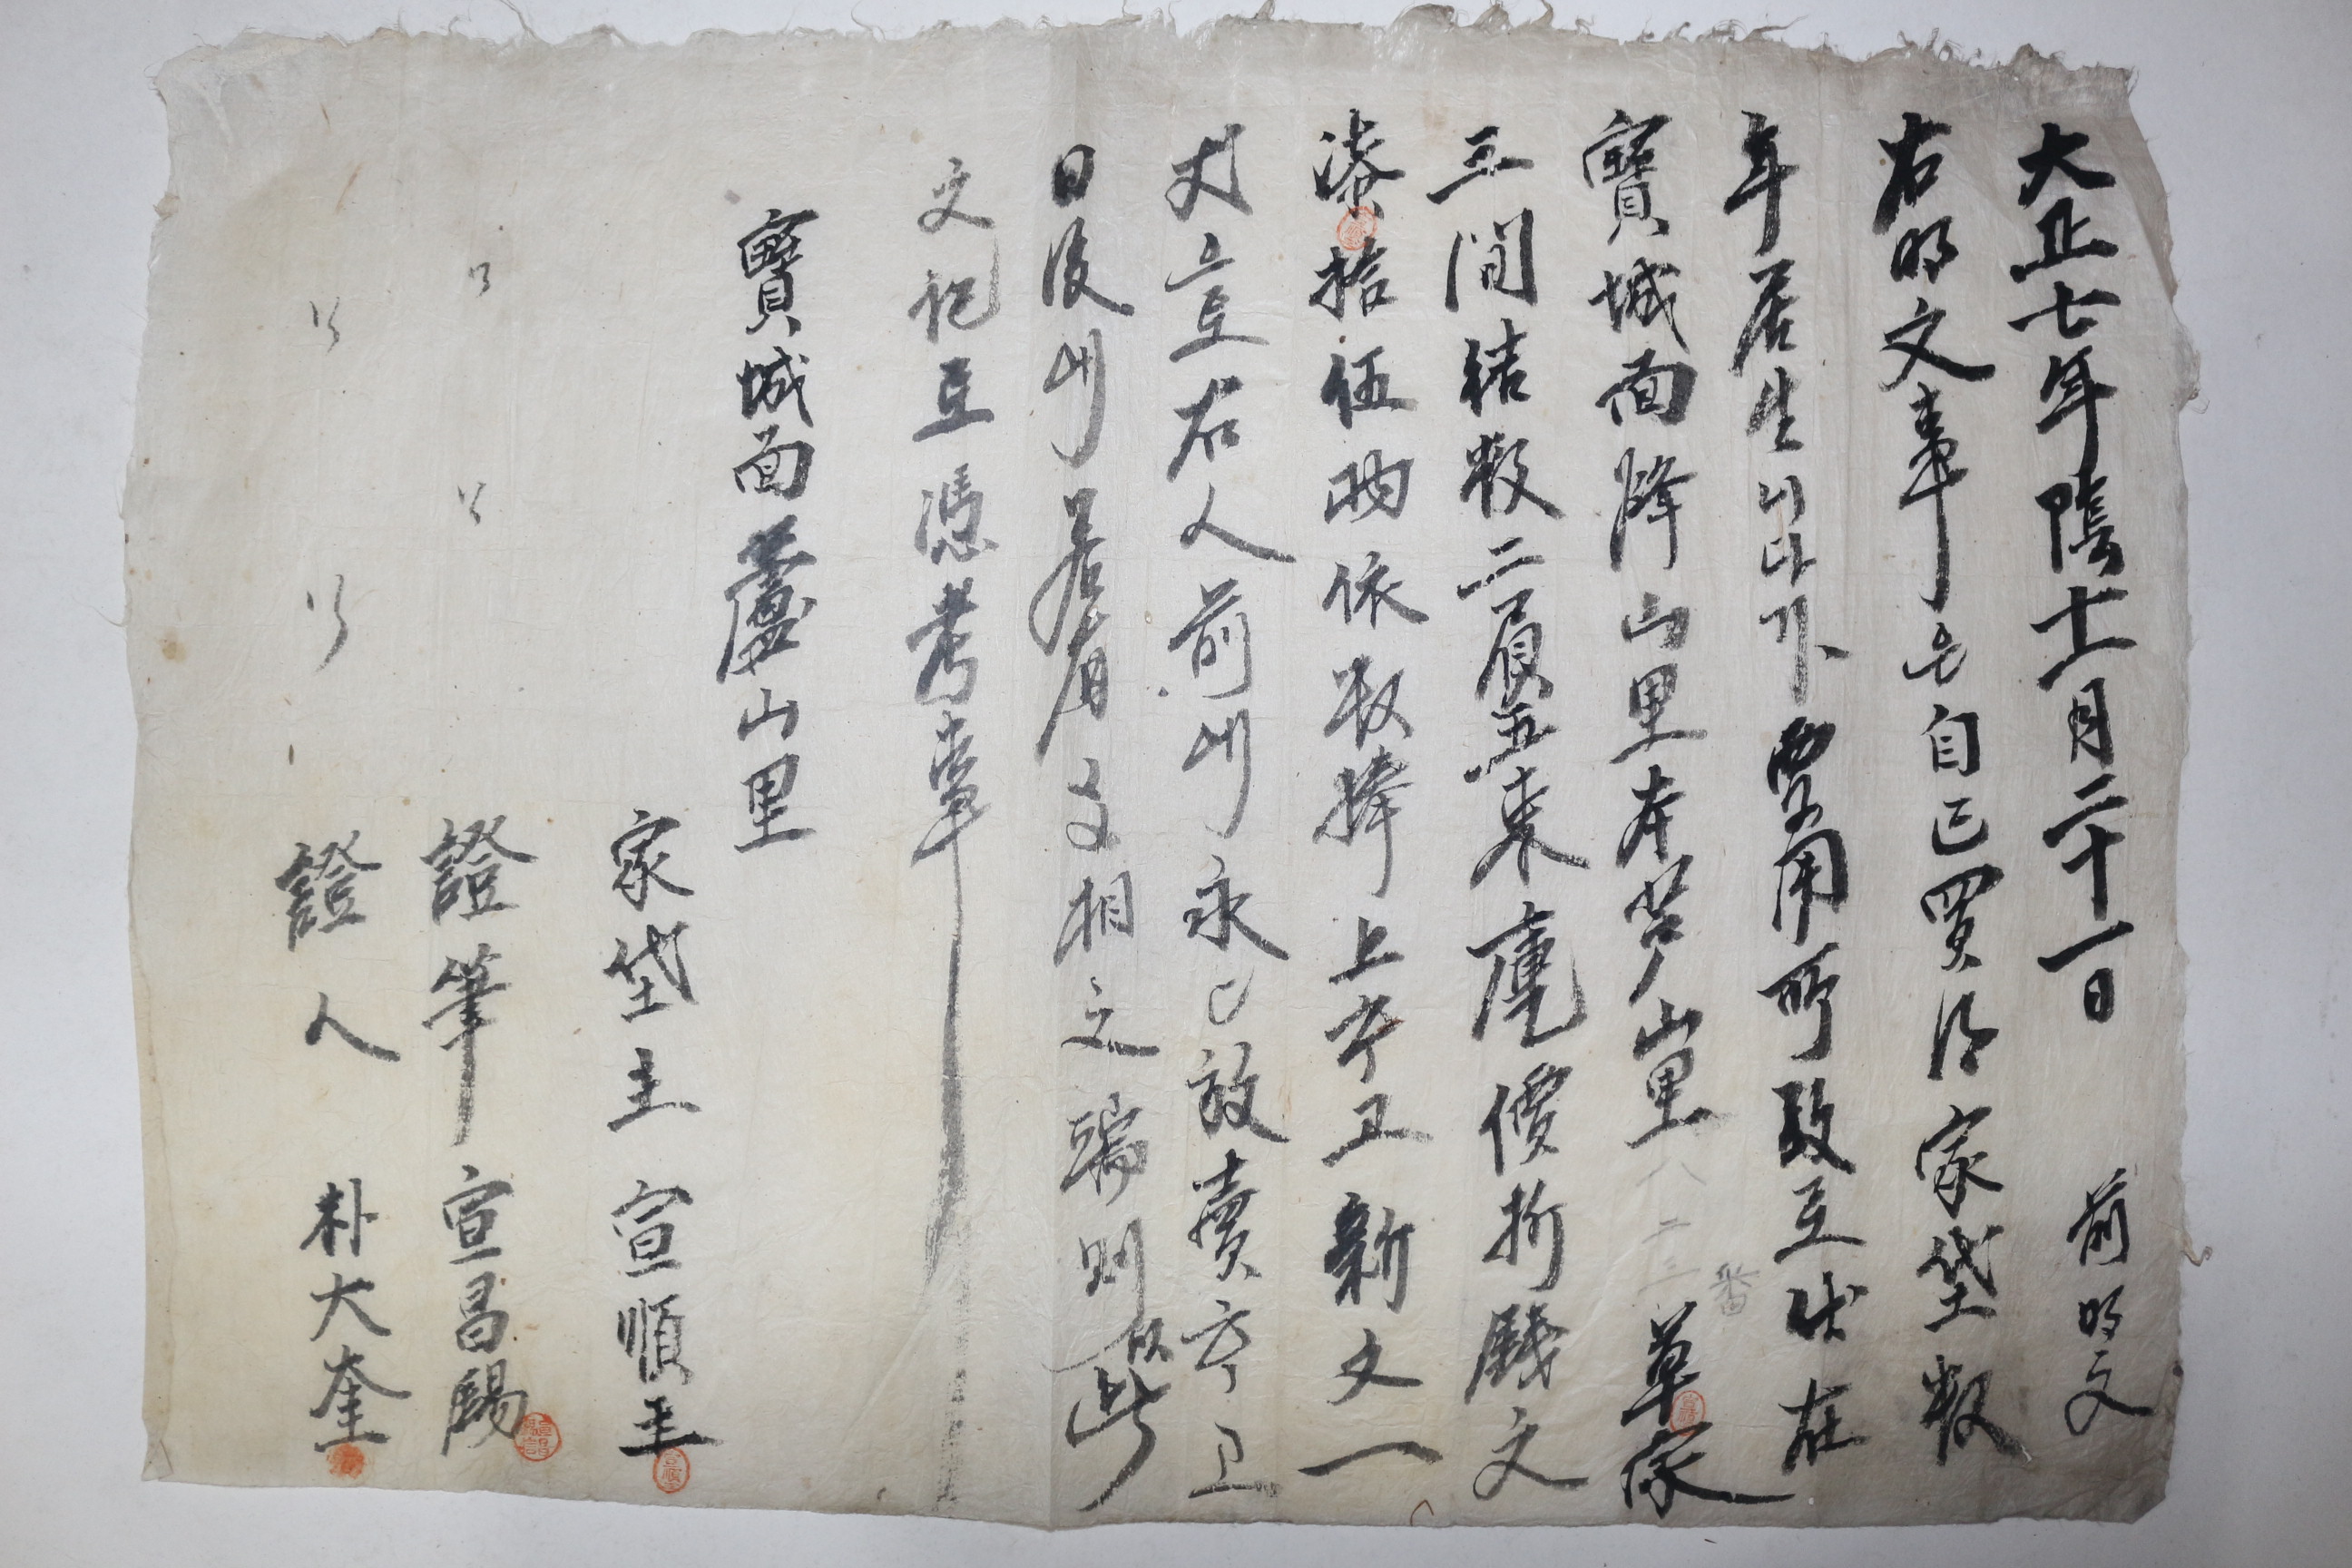 大正七年陰十一月二十一日 前明文
右明文事段自己買得家垈數
年居生이다가要用所致로伏在
寶城面降山里本芦山里 八二三番 草家
三間結數二負五束庫價折錢文
柒拾伍兩依數捧上是고新文一
丈으로右人前에永永放賣이고
日後에若有文相之端則以此
文記로憑考事
寶城面蘆山里
家垈主 宣順主
證筆 宣昌賜
證人 朴大奎